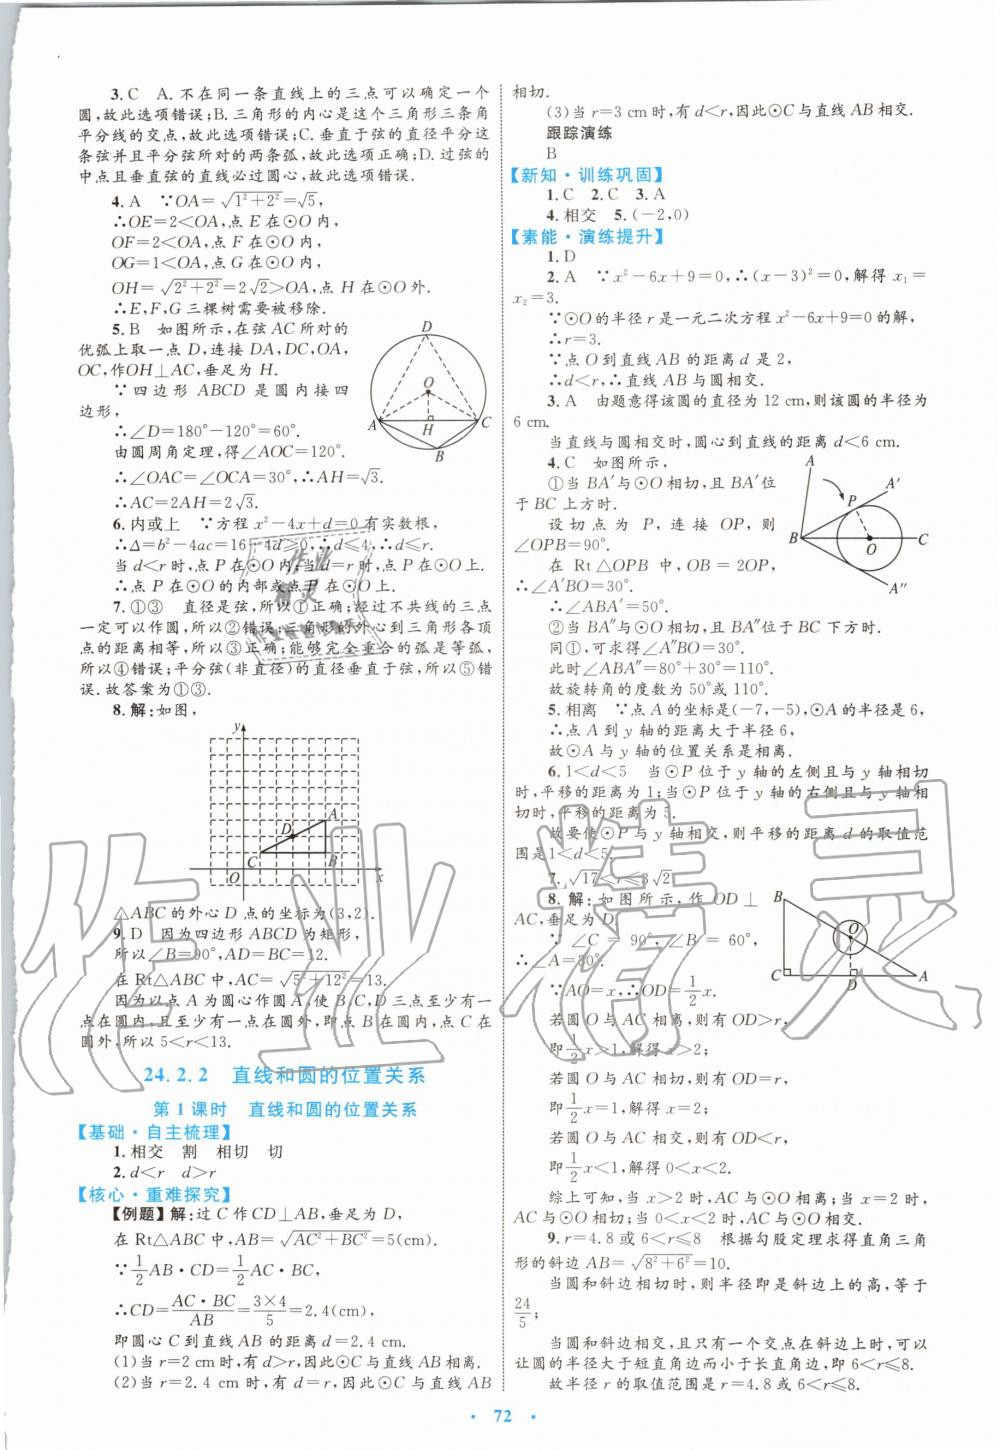 3.C　A.不在同一条直线上的三点可以确定一个
圆,故此选项错误;B.三角形的内心是这个三角形三条角
平分线的交点,故此选项错误;C.垂直于弦的直径平分这
条弦并且平分弦所对的两条弧,故此选项正确;D.过弦的
中点且垂直弦的直线必过圆心,故此选项错误.
4.A　∵OA=√(1²+2²)=√5,
∴OE=2<OA,点 E 在⊙O 内,
OF=2<OA,点 F 在⊙O 内,
OG=1<OA,点 G 在⊙O 内,
OH=√(2²+2²)=2√2>OA,点 H 在⊙O 外.
∴E,F,G 三棵树需要被移除.
5.B　如图所示,在弦 AC 所对的
优弧上取一点 D,连接 DA,DC,OA,
OC,作OH⊥AC,垂足为 H.
∵四边形 ABCD 是圆内接四
边形,
∴∠D=180°-120°=60°.
由圆周角定理,得∠AOC=120°.
∴∠OAC=∠OCA=30°.∴AH=√3.
∴AC=2AH=2√3.
D
O
A
H
C
B
6.内或上　∵方程 x²-4x+d=0 有实数根,
∴Δ=b²-4ac=16-4d≥0,∴d≤4,∴d≤r.
当 d<r 时,点 P 在⊙O 内;当 d=r 时,点 P 在⊙O
上.∴点 P 在⊙O 的内部或点 P 在⊙O 上.
7.①③　直径是弦,所以①正确;经过不共线的三点
一定可以作圆,所以②错误;三角形的外心到三角形各顶
点的距离相等,所以③正确;能够完全重合的弧是等弧,
所以④错误;平分弦(非直径)的直径垂直于弦,所以⑤错
误.故答案为①③.
8.解:如图,
y
A
D
C
B
O
x
△ABC 的外心 D 点的坐标为(3,2).
9.D　因为四边形 ABCD 为矩形,
所以∠B=90°,AD=BC=12.
在 Rt△ABC 中,AC=√(5²+12²)=13.
因为以点 A 为圆心作圆 A,使 B,C,D 三点至少有一
点在圆内,且至少有一点在圆外,即点 B 在圆内,点 C 在
圆外,所以 5<r<13.
24.2.2　直线和圆的位置关系
第 1 课时　直线和圆的位置关系
【基础·自主梳理】
1.相交　割　相切　切
2.d<r　d>r
【核心·重难探究】
【例题】解:过 C 作 CD⊥AB,垂足为 D,
在 Rt△ABC 中,AB=√(AC²+BC²)=5(cm).
∵1/2 AB·CD=1/2 AC·BC,
∴CD=AC·BC/AB=3×4/5=2.4(cm),
即圆心 C 到直线 AB 的距离 d=2.4 cm.
(1)当 r=2 cm 时,有 d>r,因此⊙C 与直线 AB 相离.
(2)当 r=2.4 cm 时,有 d=r,因此⊙C 与直线 AB
相切.
(3)当 r=3 cm 时,有 d<r,因此⊙C 与直线 AB 相交.
跟踪演练
B
【新知·训练巩固】
1.C　2.C　3.A
4.相交　5.(-2,0)
【素能·演练提升】
1.D
2.A　∵x²-6x+9=0,∴(x-3)²=0,解得 x₁=
x₂=3.
∵⊙O 的半径 r 是一元二次方程 x²-6x+9=0 的解,
∴r=3.
∵点 O 到直线 AB 的距离 d 是 2,
∴d<r,∴直线 AB 与圆相交.
3.A　由题意得该圆的直径为 12 cm,则该圆的半径为
6 cm.
当直线与圆相交时,圆心到直线的距离 d<6 cm.
4.C　如图所示,
①当 BA′与⊙O 相切,且 BA′位
于 BC 上方时.
设切点为 P,连接 OP,则
∠OPB=90°.
在 Rt△OPB 中,OB=2OP,
∴∠A′BO=30°.
∴∠ABA′=50°.
A
A′
P
B
O
C
A″
②当 BA″与⊙O 相切,且 BA″位于 BC 下方时.
同①,可求得∠A″BO=30°.
此时∠ABA″=80°+30°=110°.
故旋转角的度数为 50°或 110°.
5.相离　∵点 A 的坐标是(-7,-5),⊙A 的半径是 6,
∴点 A 到 y 轴的距离大于半径 6,
故⊙A 与 y 轴的位置关系是相离.
6.1<d<5　当⊙P 位于 y 轴的左侧且与 y 轴相切
时,平移的距离为 1;当⊙P 位于 y 轴的右侧且与 y 轴相
切时,平移的距离为 5.
故要使⊙P 与 y 轴相交,则平移的距离 d 的取值范
围是 1<d<5.
7.√17<r≤3√2
8.解:如图所示,作 OD⊥
AC,垂足为 D.
∵∠C=90°,∠B=60°,
∴∠A=30°.
∵AO=x,∴OD=1/2 x.
B
O
C
D
A
若圆 O 与 AC 相离,则有 OD>r,
即1/2 x>1,解得 x>2.
若圆 O 与 AC 相切,则有 OD=r,
即1/2 x=1,解得 x=2.
若圆 O 与 AC 相交,则有 OD<r,
即1/2 x<1,解得 0<x<2.
综上可知,当 x>2 时,AC 与⊙O 相离;当 x=2 时,
AC 与⊙O 相切;当 0<x<2 时,AC 与⊙O 相交.
9.r=4.8 或 6<r≤8　根据勾股定理求得直角三角
形的斜边 AB=√(8²+6²)=10.
当圆和斜边相切时,则半径即是斜边上的高,等于
24/5;
当圆和斜边相交,且只有一个交点在斜边上时,可以
让圆的半径大于短直角边而小于长直角边,即 6<r≤8.
故半径 r 的取值范围是 r=4.8 或 6<r≤8.
· 72 ·
作业精灵